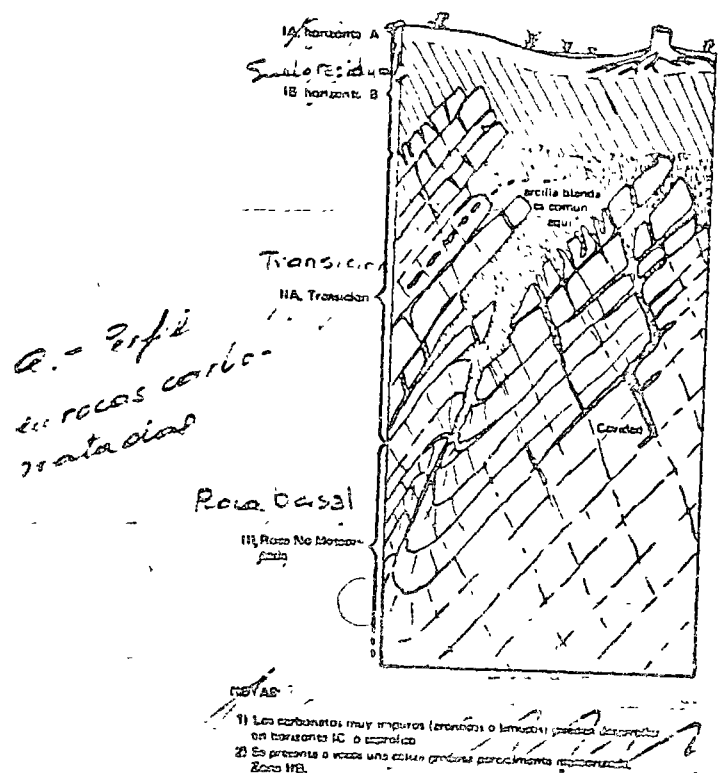 IA, horizonte A
Suelo residual
IB horizonte B
arcilla blanda
es comun
aqui
Transición
IIA, Transicion
a.- Perfil
en rocas carbo-
natadas
Cavidad
Roca basal
III, Roca No Meteori-
zada
NOTAS
1) Los carbonatos muy impuros (arenosos o limosos) pueden desarrollar
un horizonte IC o saprolito
2) Se presenta a veces una parcialmente meteorizada,
Zona IIB.